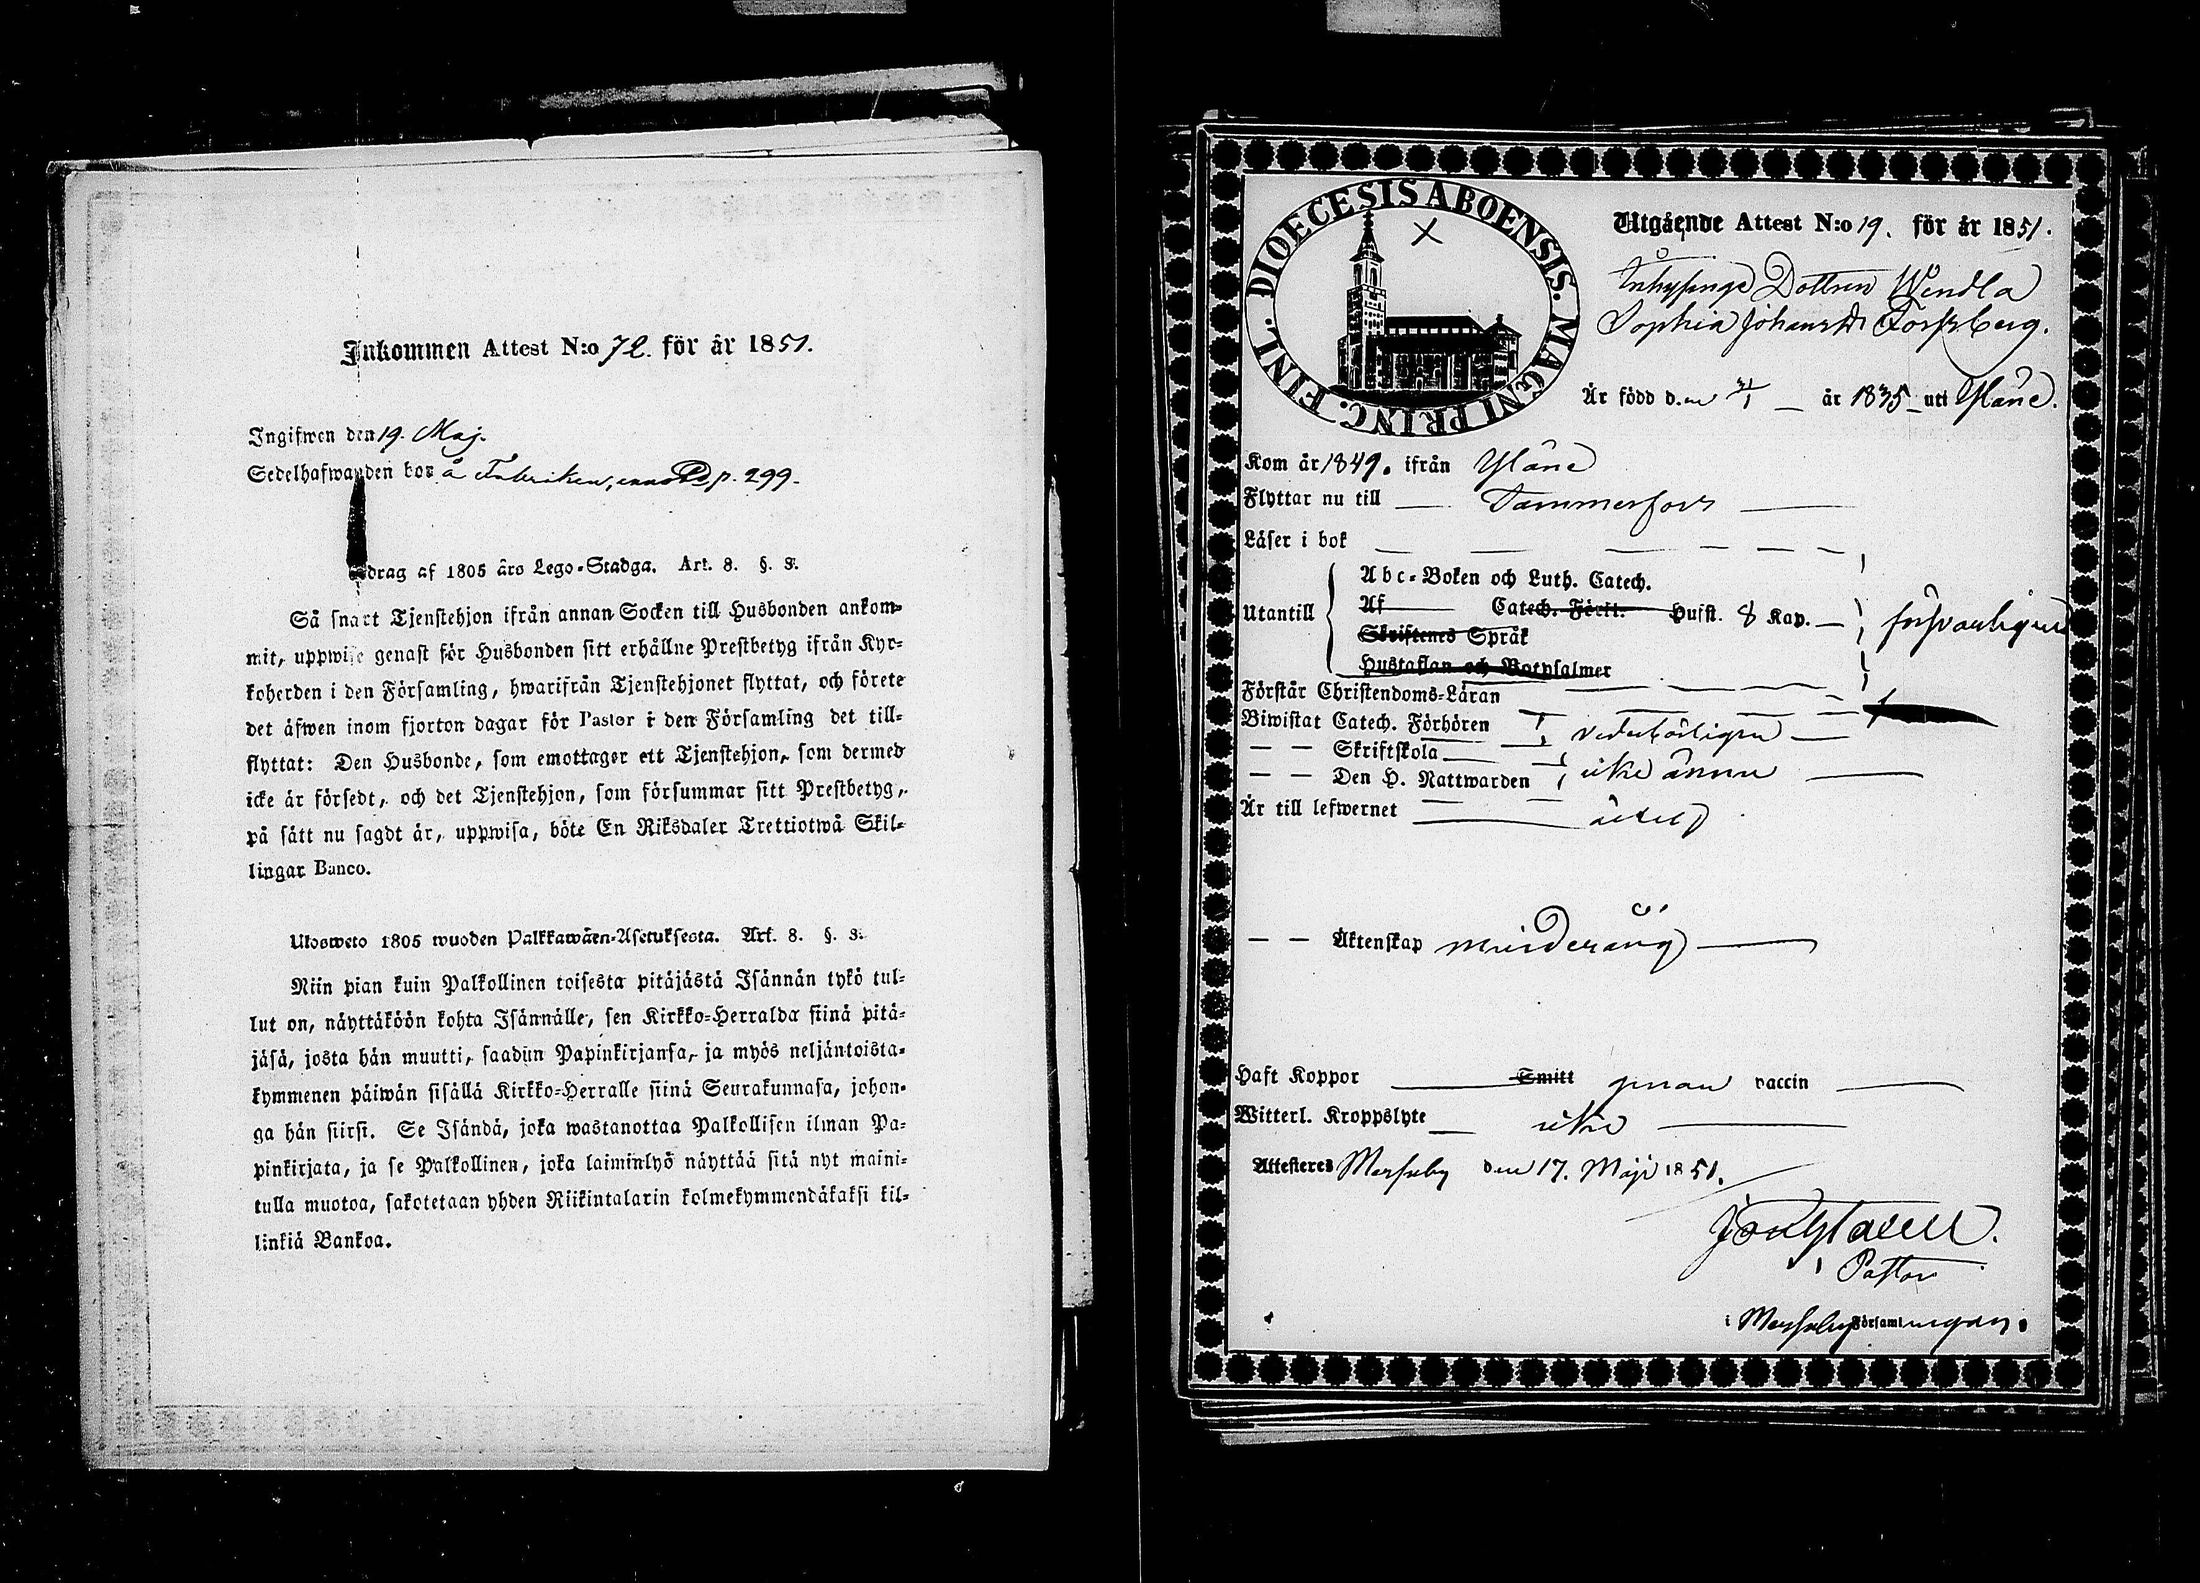 Inkommen Attest N:o 72. för år 1851.
Ingifwen den 19. Maj.
Sedelhafwanden bor å Fabriken, p. 299.
drag af 1805 års Lego-Stadga. Art. 8. §. 3.
Så snart Tjenstehjon ifrån annan Socken till Husbonden ankom-
mit, uppwise genast för Husbonden sitt erhållne Prestbetyg ifrån Kyr-
koherden i den Församling, hwarifrån Tjenstehjonet flyttat, och förete
det äfwen inom fjorton dagar för Pastor i den Församling det till-
flyttat: Den Husbonde, som emottager ett Tjenstehjon, som dermed
icke är försedt, och det Tjenstehjon, som försummar sitt Prestbetyg,
på sätt nu sagdt är, uppwisa, böte En Riksdaler Trettiotwå Skil-
lingar Banco.
Ulosweto 1805 wuoden Palkkawäen-Asetuksesta. Art. 8. §. 3.
Niin pian kuin Palkollinen toisesta pitäjästä Isännän tykö tul-
lut on, näyttäköön kohta Isännälle, sen Kirkko-Herralda siinä pitä-
jäsä, josta hän muutti, saadun Papinkirjansa, ja myös neljäntoista-
kymmenen päiwän sisällä Kirkko-Herralle siinä Seurakunnasa, johon-
ga hän siirsi. Se Isändä, joka wastanottaa Palkollisen ilman Pa-
pinkirjata, ja se Palkollinen, joka laiminlyö näyttää sitä nyt maini-
tulla muotoa, sakotetaan yhden Riikintalarin kolmekymmendäkaksi kil-
linkiä Bankoa.
DIOECESIS ABOENSIS. MAGNI PRINC. FINL.
Utgående Attest N:o 19. för år 1851.
Inhysinge Dottren Wendla
Sophia Johansdr Forsberg.
Är född den 31/1 år 1835 uti Yläne.
Kom år 1849. ifrån Yläne
Flyttar nu till Tammerfors
Läser i bok
Utantill
Abc-Boken och Luth. Catech.
Af Catech. Förkl. Husst. 8 Kap. försvarligen
Skriftenes Språk
Hustaflan och Botpsalmer
Förstår Christendoms-Läran
Biwistat Catech. Förhören vederbörligen
— — Skriftskola
— — Den H. Nattwarden icke ännu
Är till lefwernet
— — Äktenskap minderårig
Haft Koppor Smitt genom vaccin
Witterl. Kroppslyte icke
Attesteres Merseby den 17. Maji 1851.
Pastor
i Merseby Församlingen.